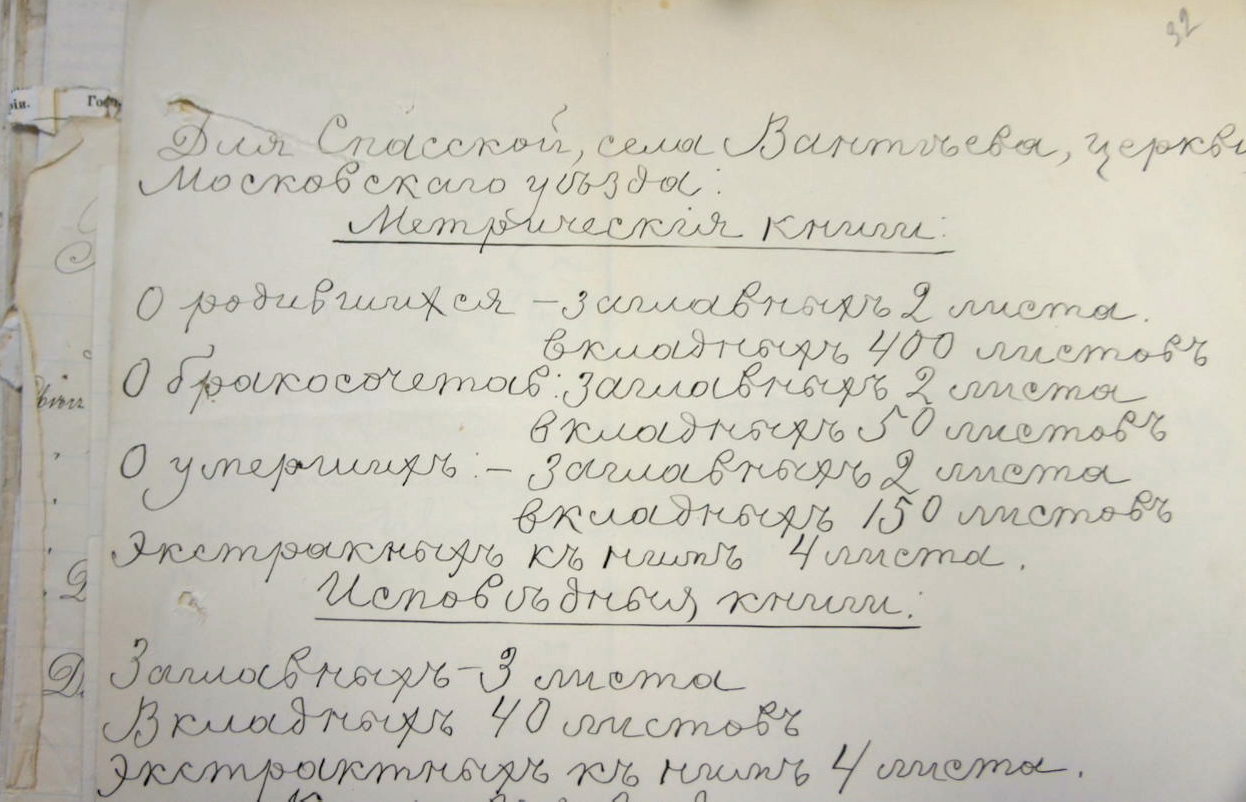 32
рiи.
Гос
Для Спасской, села Вантѣева, церкви
Московскаго уѣзда:
Метрическія книги:
О родившихся – заглавныхъ 2 листа.
вкладныхъ 400 листовъ
О бракосочетав: заглавныхъ 2 листа
вкладныхъ 50 листовъ
О умершихъ: – заглавныхъ 2 листа
вкладныхъ 150 листовъ
Экстракныхъ къ нимъ 4 листа.
Исповѣдныя книги:
Заглавныхъ – 3 листа
Вкладныхъ 40 листовъ
Экстрактныхъ къ нимъ 4 листа.